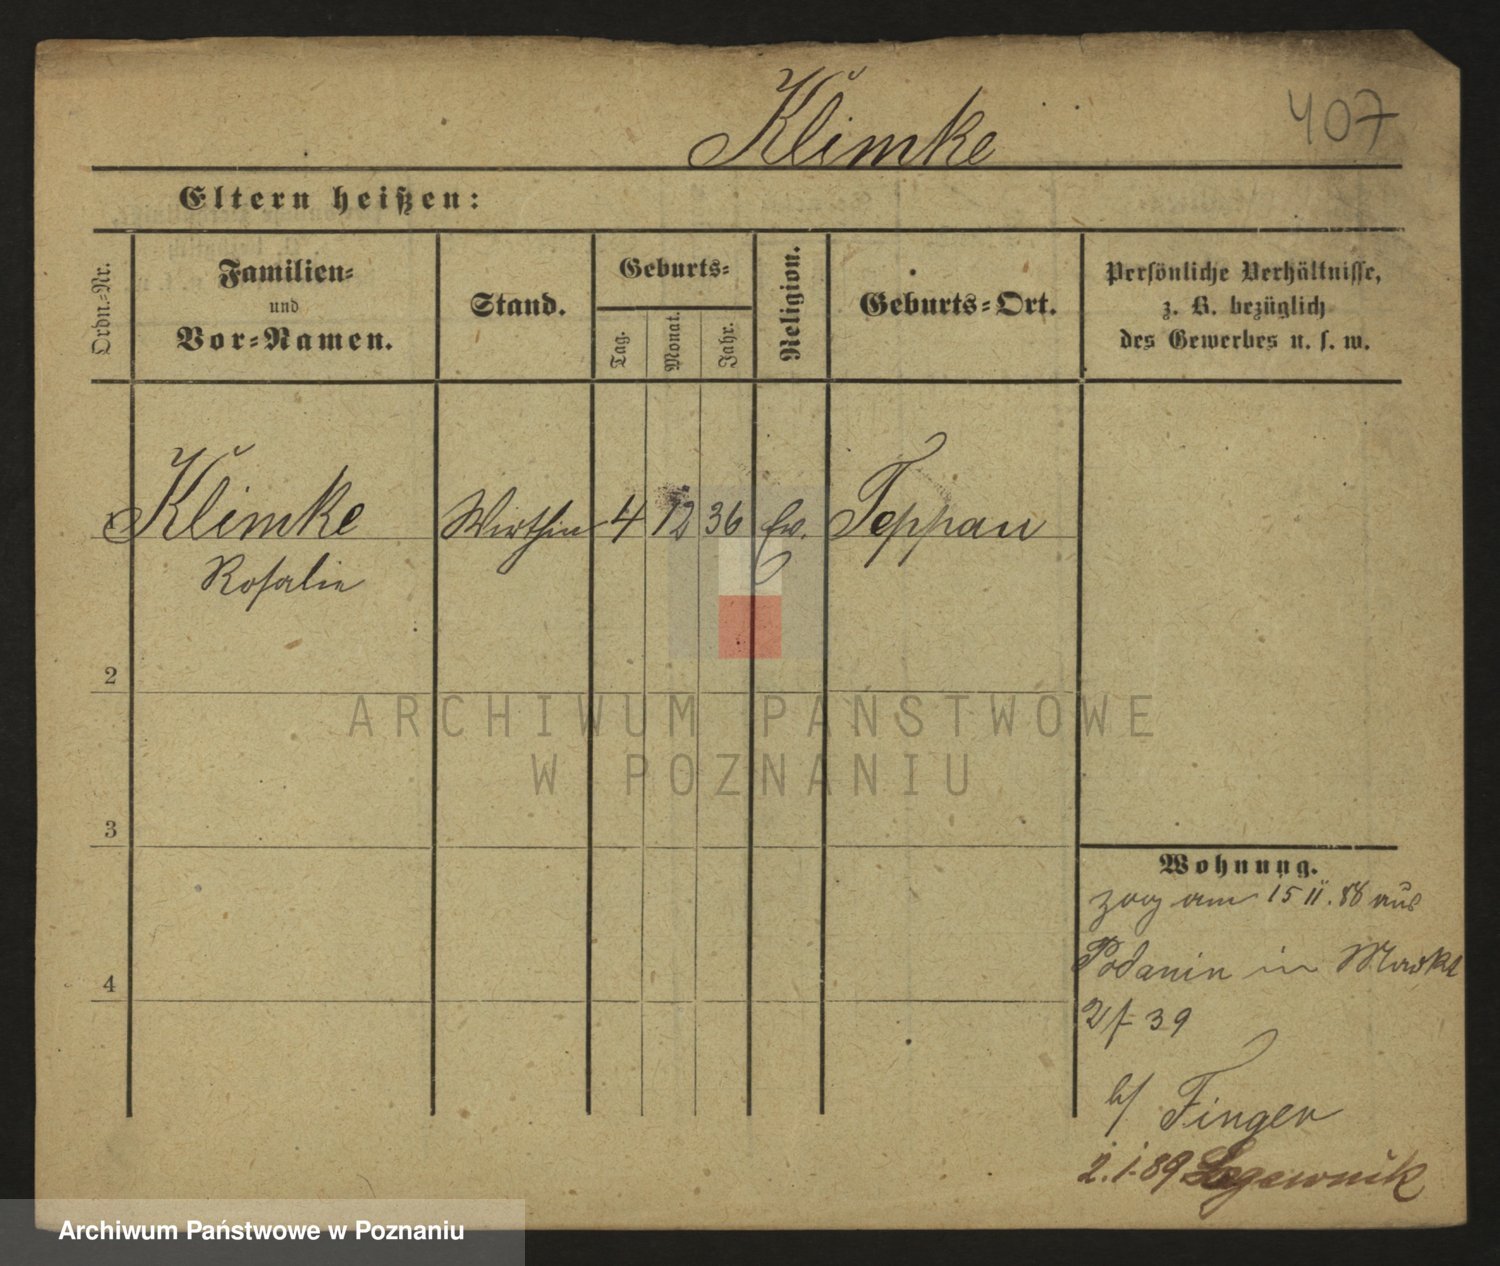 Klimke
407
Eltern heißen:
Ordn.-Nr.
Familien-
und
Vor-Namen.
Stand.
Geburts-
Tag.
Monat.
Jahr.
Religion.
Geburts-Ort.
Persönliche Verhältnisse,
z. B. bezüglich
des Gewerbes u. s. w.
1 Klimke Wirthin 4 12 36 Ev. Teppau
Rosalie
2
3
4
Wohnung.
zog am 15 11. 88 aus
Podanin in Markt
2/ 39
b/ Finger
2. 1. 89
ARCHIWUM PAŃSTWOWE
W POZNANIU
Archiwum Państwowe w Poznaniu